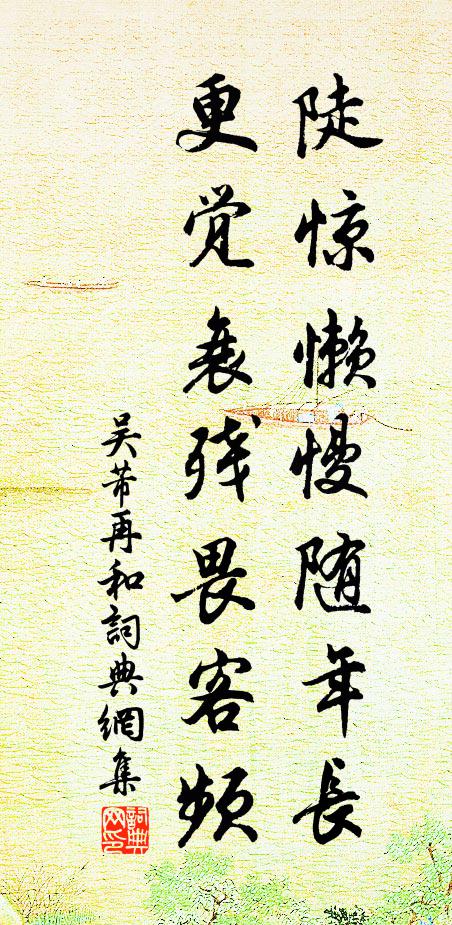 陡惊懒慢随年长
更觉衰残畏客频
吴芾再和詞典網集
詞典
网印